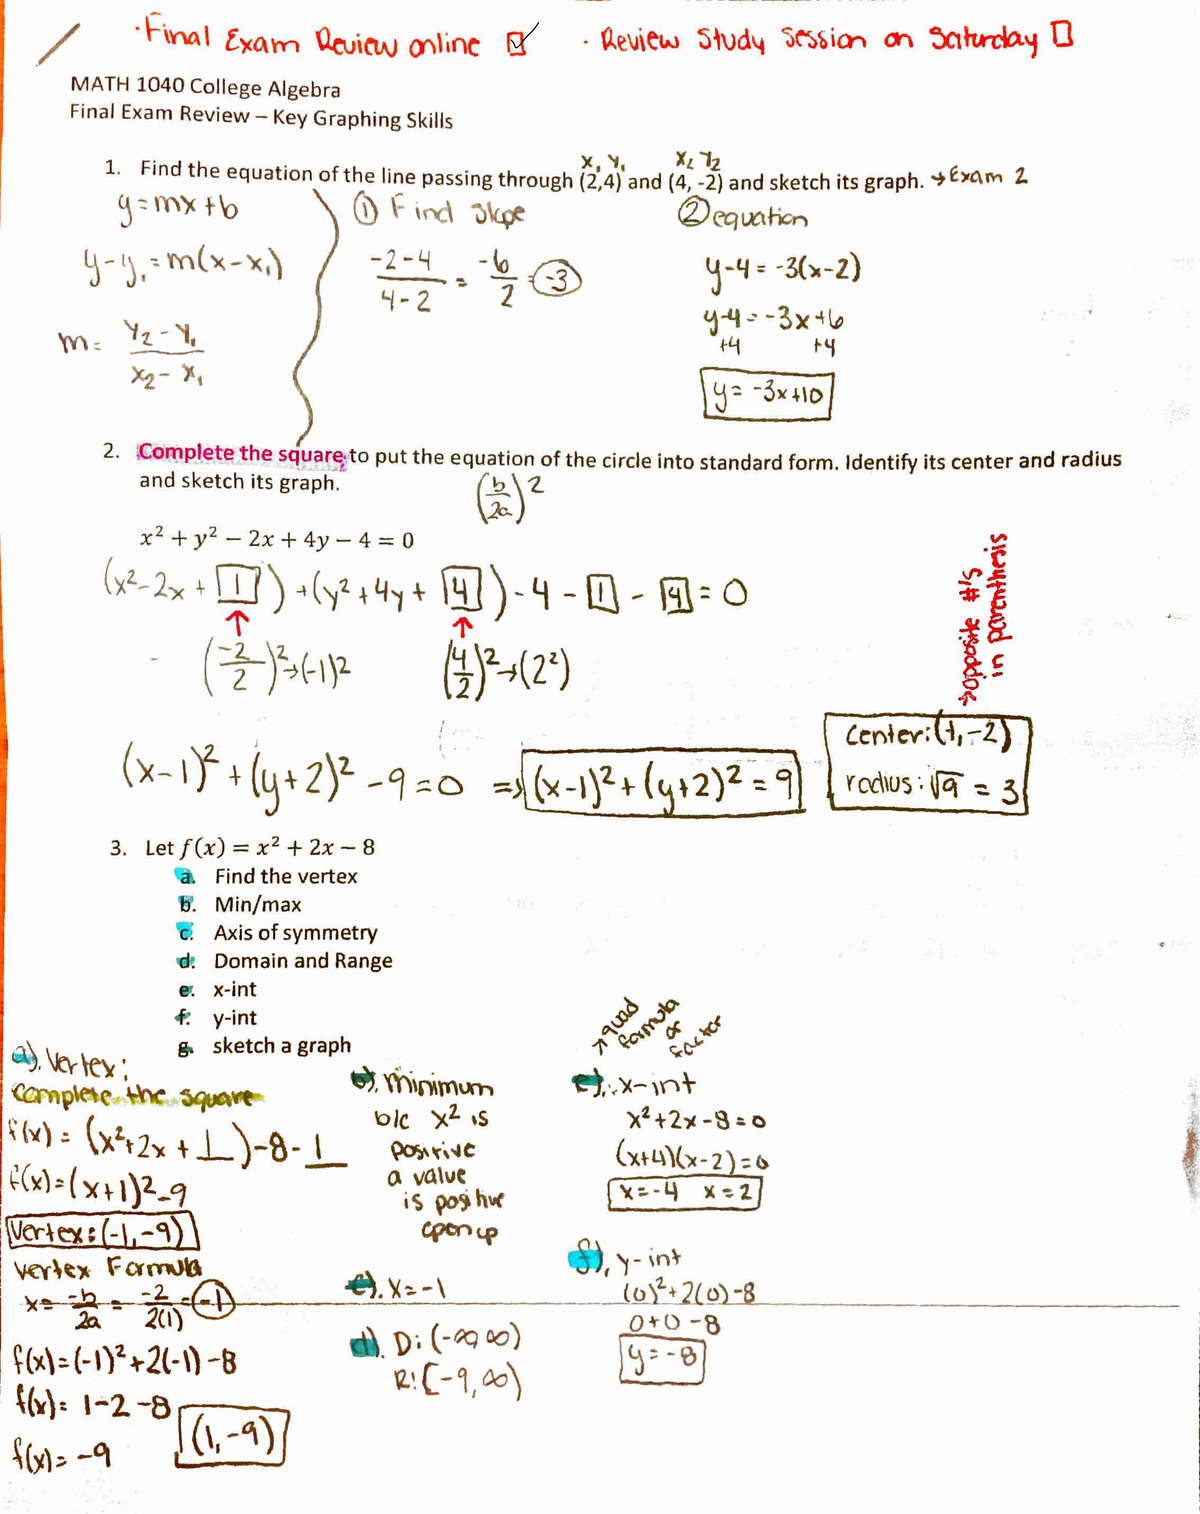 · Final Exam Review online ☑ · Review Study Session on Saturday ☐
MATH 1040 College Algebra
Final Exam Review – Key Graphing Skills
x₁ y₁ x₂ y₂
1. Find the equation of the line passing through (2,4) and (4, -2) and sketch its graph. → Exam 2
y=mx+b
y-y₁=m(x-x₁)
m= y₂-y₁ / x₂-x₁
① Find slope
-2-4 / 4-2 = -6 / 2 = -3
② equation
y-4 = -3(x-2)
y-4 = -3x+6
+4 +4
y = -3x+10
2. Complete the square to put the equation of the circle into standard form. Identify its center and radius
and sketch its graph.
(b/2a)²
x² + y² − 2x + 4y − 4 = 0
(x²-2x + 1) + (y²+4y + 4) - 4 - 1 - 4 = 0
(-2/2)²→(-1)² (4/2)²→(2²)
→opposite #'s
in parenthesis
(x-1)² + (y+2)² - 9 = 0 ⇒ (x-1)² + (y+2)² = 9
center: (1,-2)
radius: √9 = 3
3. Let f(x) = x² + 2x − 8
a. Find the vertex
b. Min/max
c. Axis of symmetry
d. Domain and Range
e. x-int
f. y-int
g. sketch a graph
a). Vertex:
Complete the square
f(x) = (x²+2x + 1)-8-1
f(x)=(x+1)²-9
Vertex: (-1,-9)
Vertex Formula
x= -b/2a = -2/2(1) = -1
f(x)=(-1)²+2(-1)-8
f(x)= 1-2-8
f(x)= -9
(1,-9)
b). minimum
b/c x² is
positive
a value
is positive
open up
c). x=-1
d). D: (-∞,∞)
R: [-9,∞)
→ quad
formula
or
factor
e). x-int
x²+2x-8=0
(x+4)(x-2)=0
x=-4 x=2
f). y-int
(0)²+2(0)-8
0+0-8
y=-8